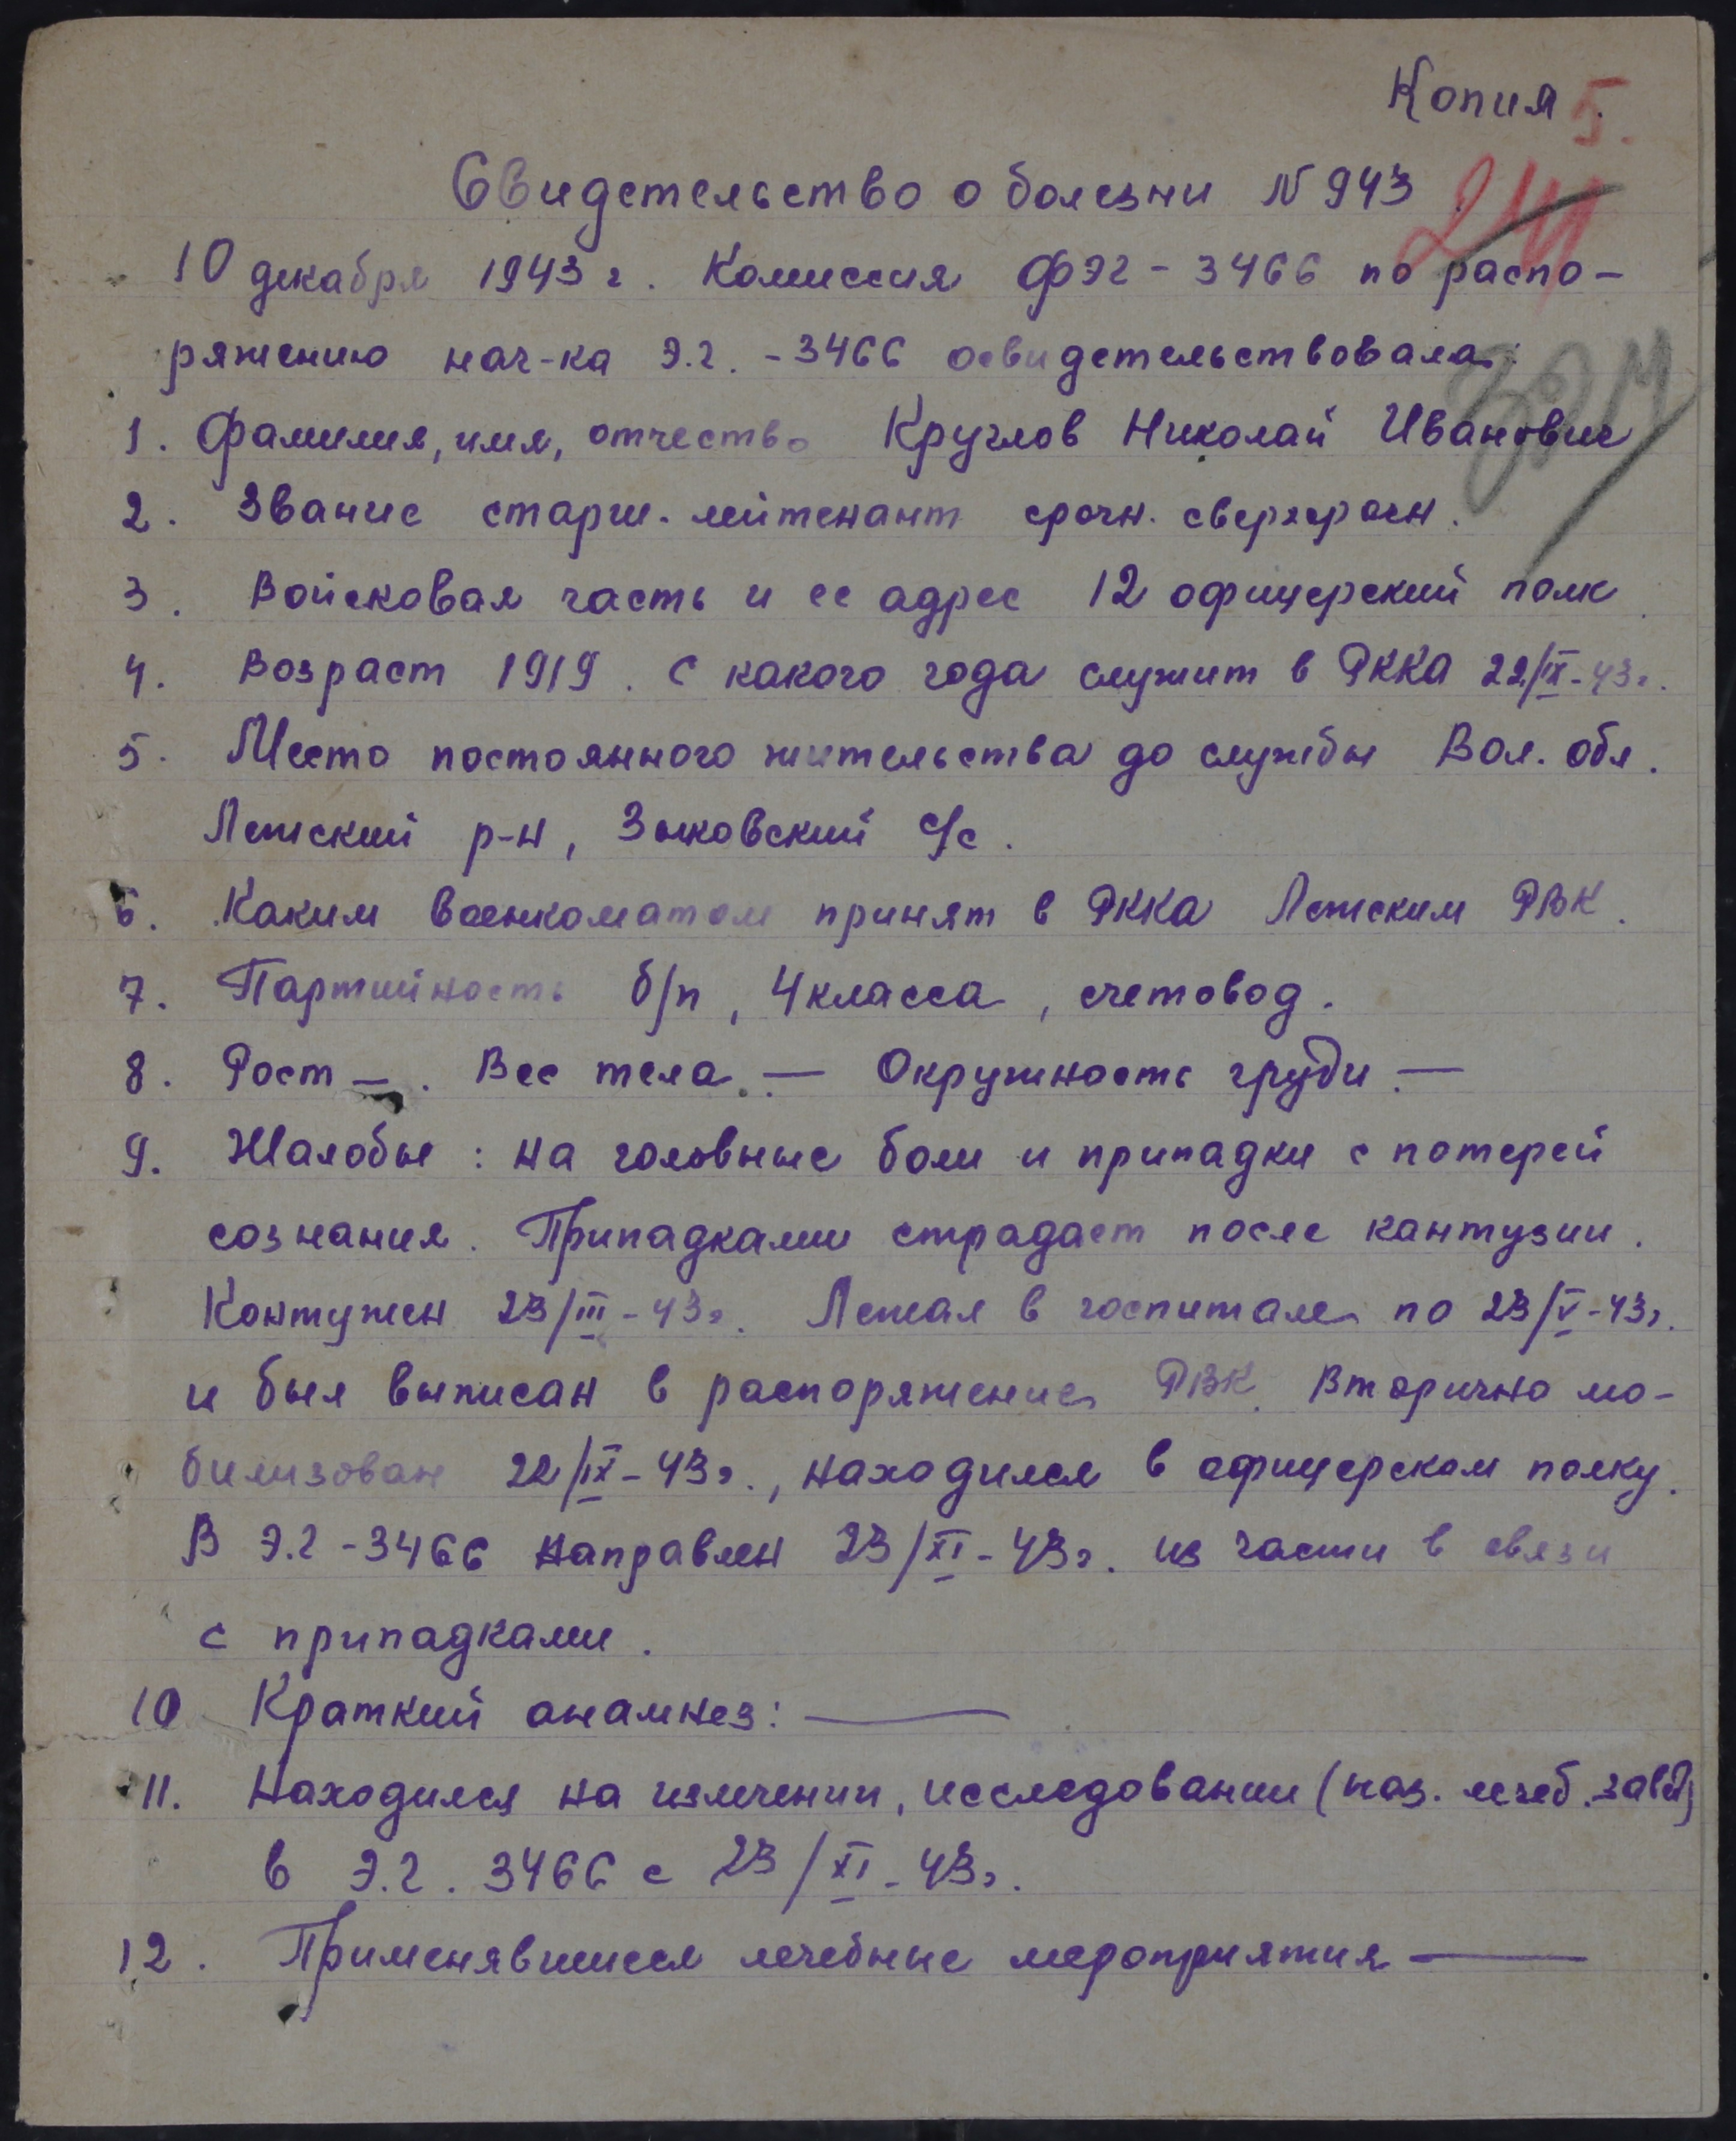 Копия.
5.
Свидетельство о болезни N 943.
24
10 декабря 1943 г. Комиссия ФЭГ - 3466 по распо-
ряжению нач-ка Э.г. - 3466 освидетельствовала:
1. Фамилия, имя, отчество Круглов Николай Иванович
2. Звание старш. лейтенант срочн. сверхсрочн.
3. Войсковая часть и ее адрес 12 офицерский полк
4. Возраст 1919. С какого года служит в РККА 22/IX-43г.
5. Место постоянного жительства до службы Вол. обл.
Лежский р-н, Зыковский с/с.
6. Каким военкоматом принят в РККА Лежским РВК.
7. Партийность б/п, 4 класса, счетовод.
8. Рост —. Вес тела. — Окружность груди. —
9. Жалобы: на головные боли и припадки с потерей
сознания. Припадками страдает после кантузии.
Контужен 23/III-43г. Лежал в госпитале по 23/V-43г.
и был выписан в распоряжение РВК. Вторично мо-
билизован 22/IX-43г., находился в офицерском полку.
В Э.г-3466 направлен 23/XI-43г. из части в связи
с припадками.
10 Краткий анамнез: —
11. Находился на излечении, исследовании (наз. лечеб. завед)
в Э.г. 3466 с 23/XI-43г.
12. Применявшиеся лечебные мероприятия —